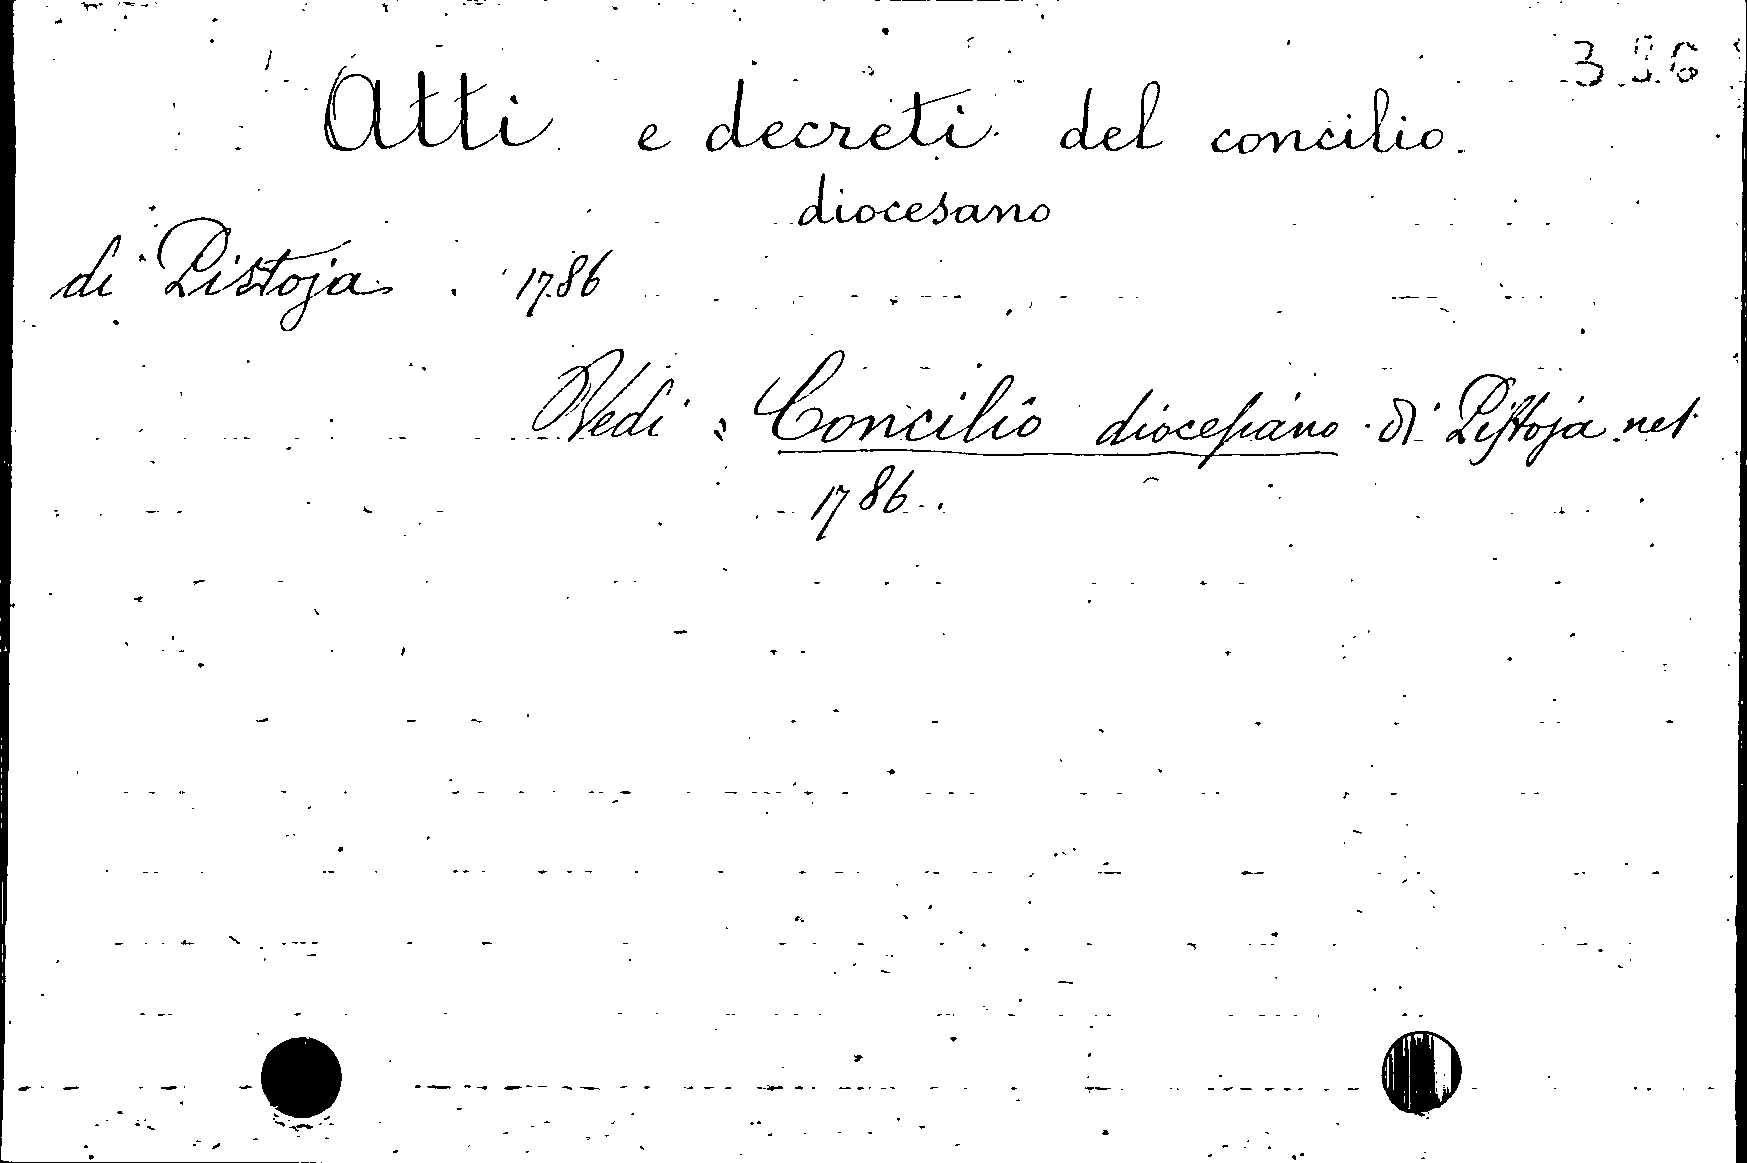 Atti e decreti del concilio
diocesano
di Pistoja. 1786
Vedi: Concilio diocesano di Pistoja nel
1786.